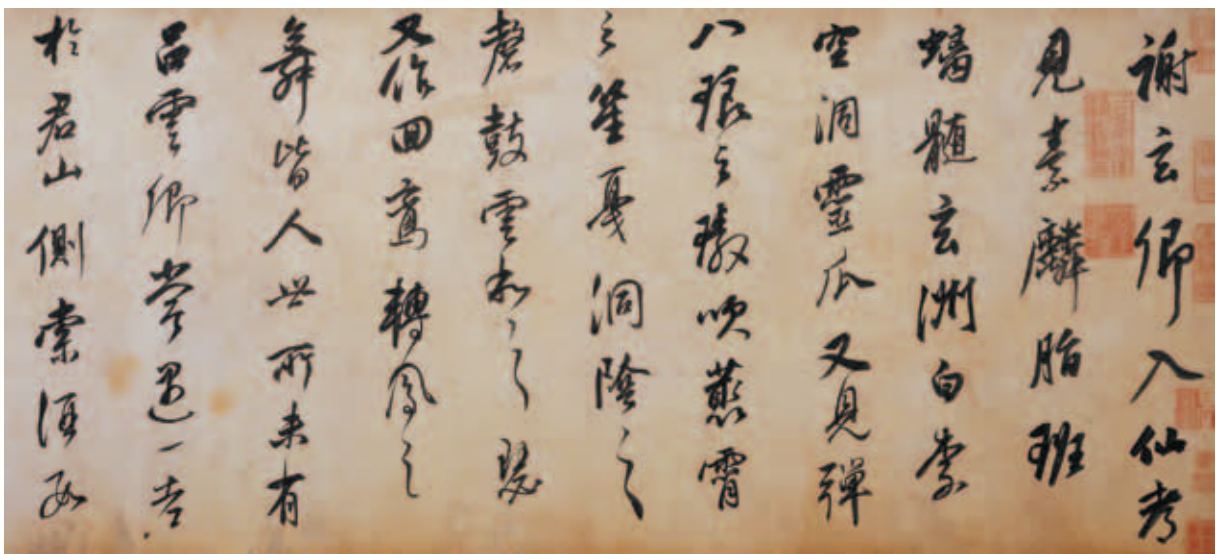 謝玄卿入仙考
見素麟脂班
螭髓玄洲白柰
空洞靈瓜又見彈
八琅之璈吹叢霄
之笙戛洞陰之
磬鼓雲和之瑟
又作回鸞轉鳳之
舞皆人世所未有
呂雲卿嘗遇一老
於君山側索酒數